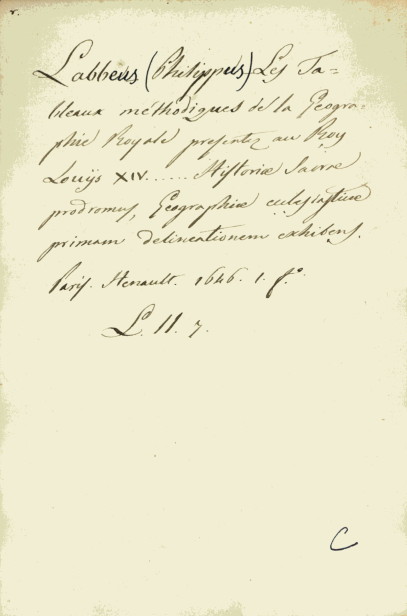 r.
Labbeus (Philippus) Les Ta=
bleaux méthodiques de la Geogra=
phie Royale presentez au Roy
Louijs XIV...... Historiæ Sacræ
prodromus, Geographiæ eclesiasticæ
primam delineationem exhibens.
Paris. Henault. 1646. 1. f.º
L. 11. 7.
C